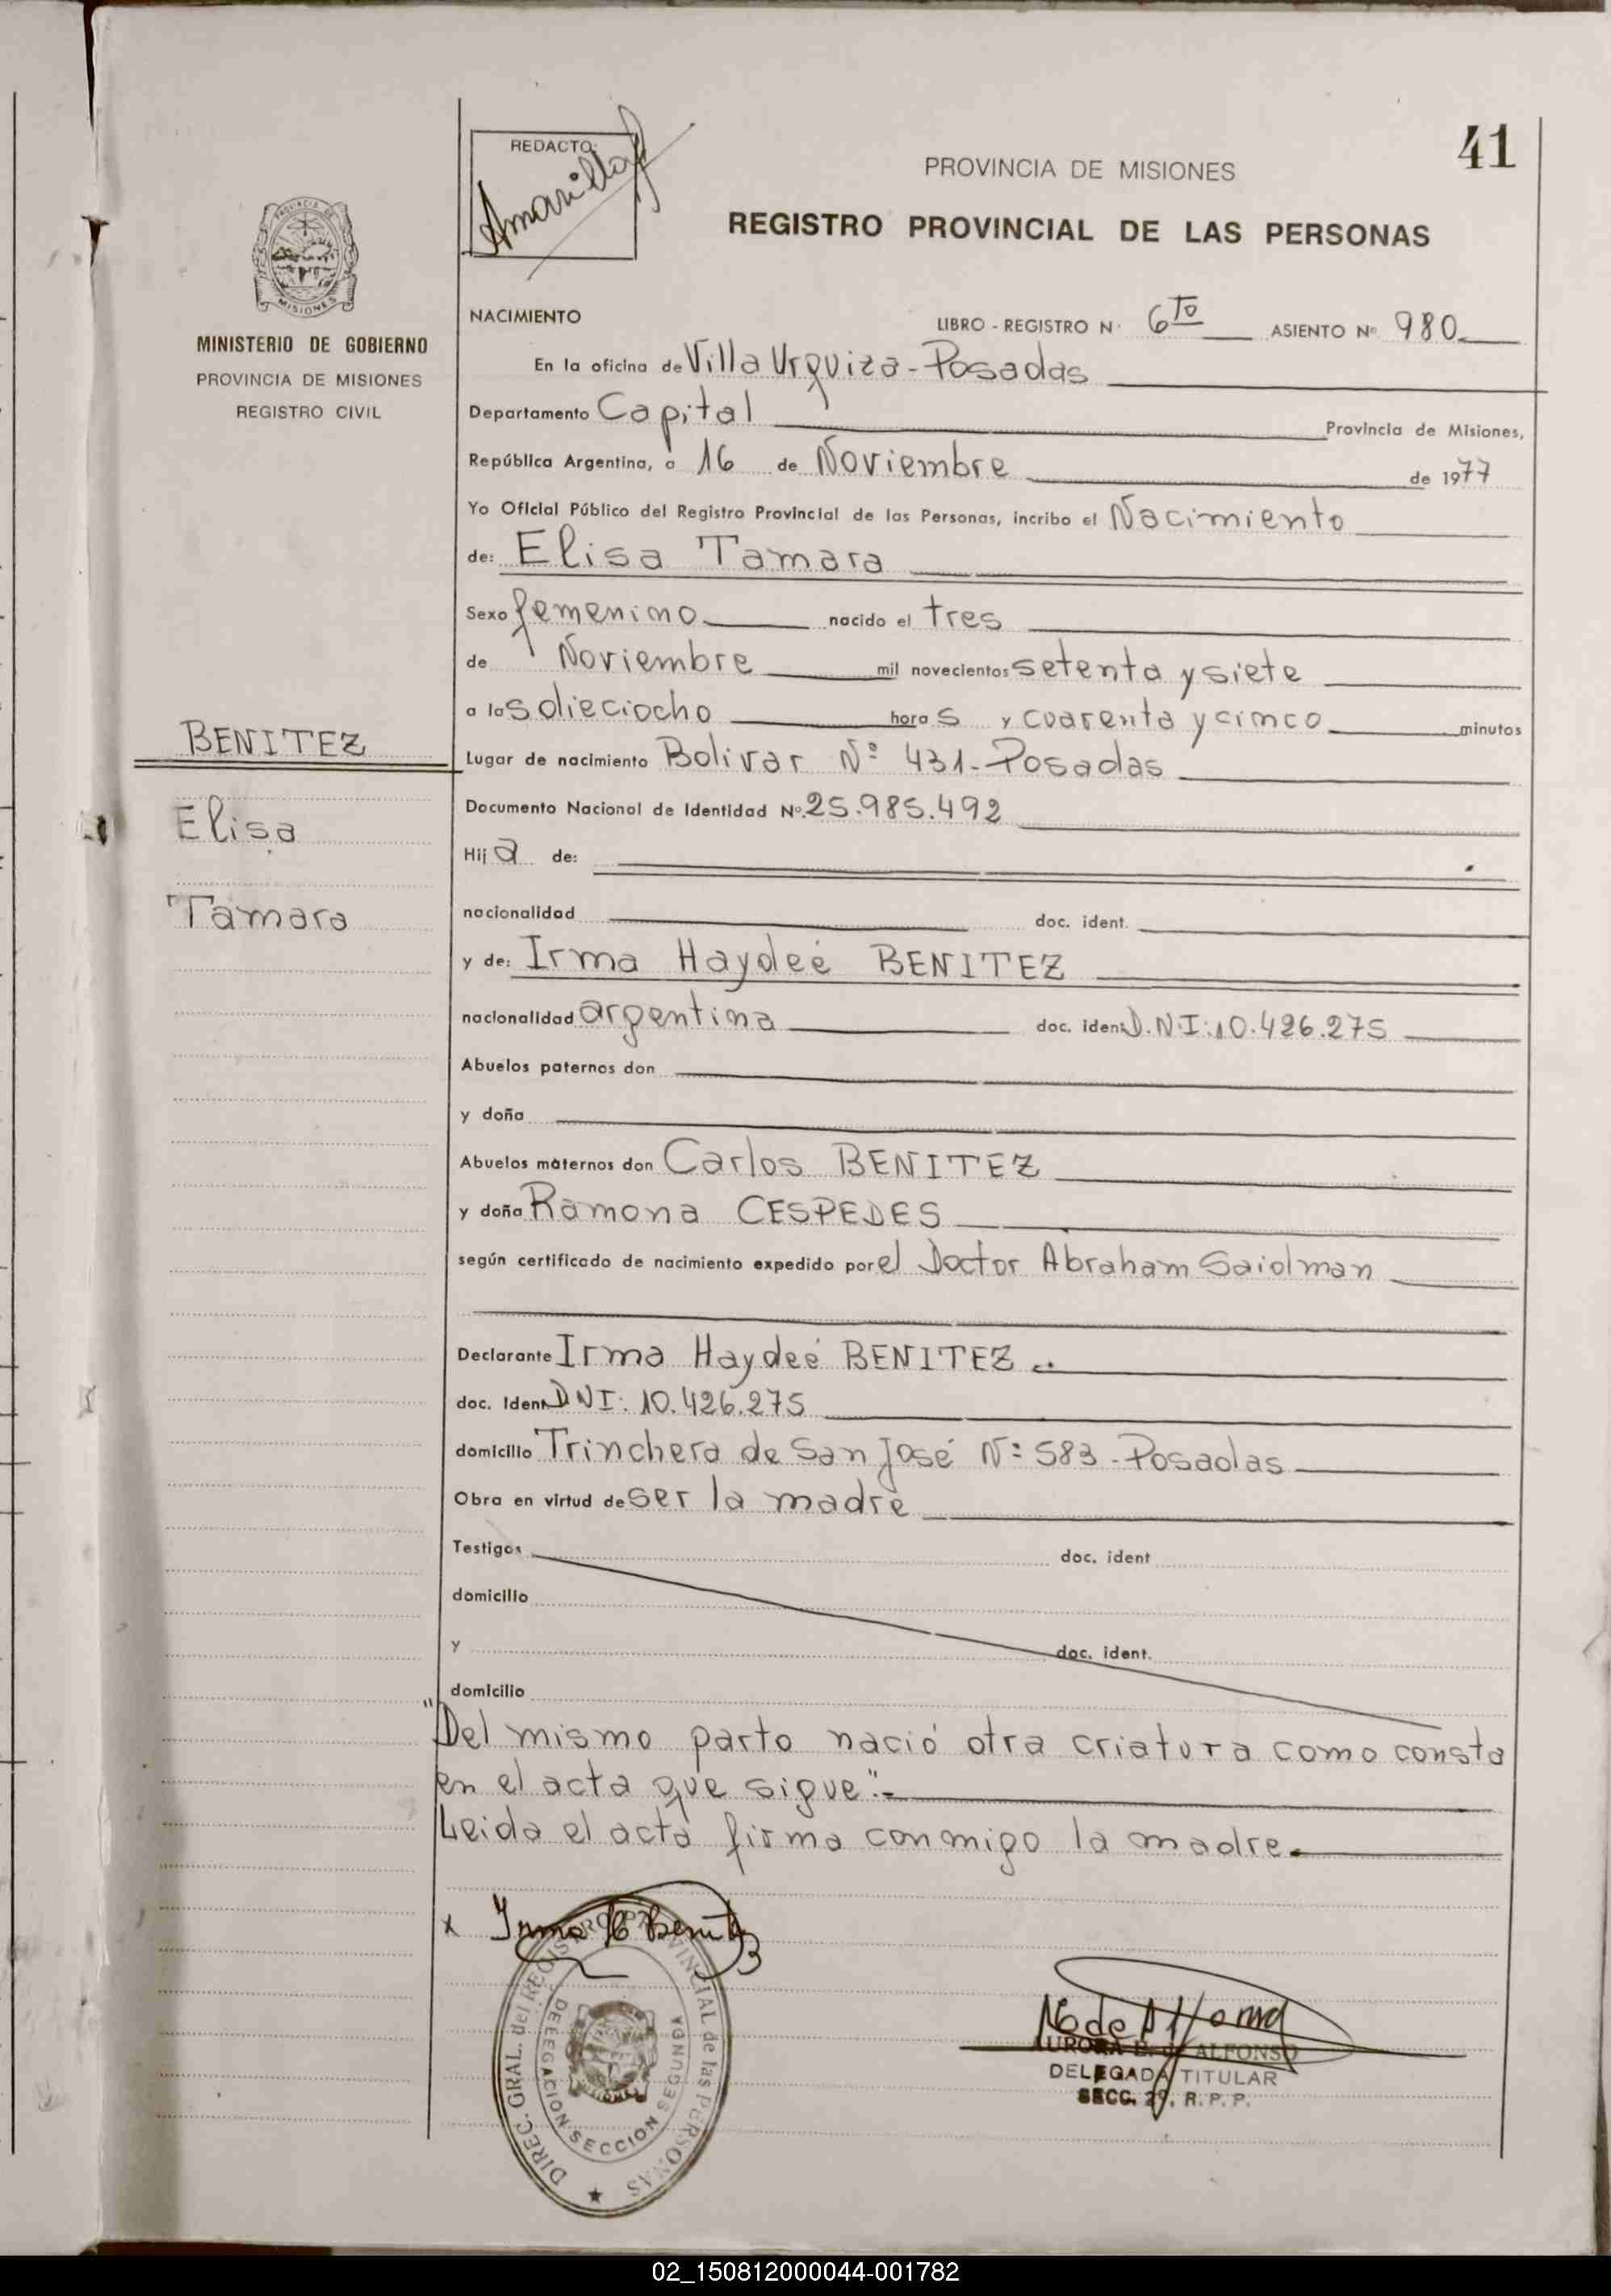 41
REDACTO:
Amarilla
PROVINCIA DE MISIONES
REGISTRO PROVINCIAL DE LAS PERSONAS
PROVINCIA DE
MISIONES
MINISTERIO DE GOBIERNO
PROVINCIA DE MISIONES
REGISTRO CIVIL
NACIMIENTO
LIBRO - REGISTRO N° 6to ASIENTO No 980
En la oficina de Villa Urquiza - Posadas
Departamento Capital Provincia de Misiones,
República Argentina, a 16 de Noviembre de 1977
Yo Oficial Público del Registro Provincial de las Personas, incribo el Nacimiento
de: Elisa Tamara
Sexo femenino nacido el tres
de Noviembre mil novecientos setenta y siete
a las dieciocho horas y cuarenta y cinco minutos
BENITEZ
Elisa
Tamara
Lugar de nacimiento Bolivar Nº 431 - Posadas
Documento Nacional de Identidad Nº 25.985.492
Hija de:
nacionalidad doc. ident.
y de: Irma Haydeé BENITEZ
nacionalidad argentina doc. ident D.N.I: 10.426.275
Abuelos paternos don
y doña
Abuelos maternos don Carlos BENITEZ
y doña Ramona CESPEDES
según certificado de nacimiento expedido por el Doctor Abraham Saidman
Declarante Irma Haydeé BENITEZ
doc. Ident DNI: 10.426.275
domicilio Trinchera de San José Nº 583 - Posadas
Obra en virtud de ser la madre
Testigos doc. ident
domicilio
y doc. ident.
domicilio
"Del mismo parto nació otra criatura como consta
en el acta que sigue".-
Leida el acta firma conmigo la madre.
x Irma H Benitez
DIREC. GRAL. del REGISTRO PROVINCIAL de las PERSONAS
DELEGACION SECCION SEGUNDA
MISIONES
A B de Alfonso
AURORA B. de ALFONSO
DELEGADA TITULAR
SECC. 2ª, R. P. P.
02_150812000044-001782